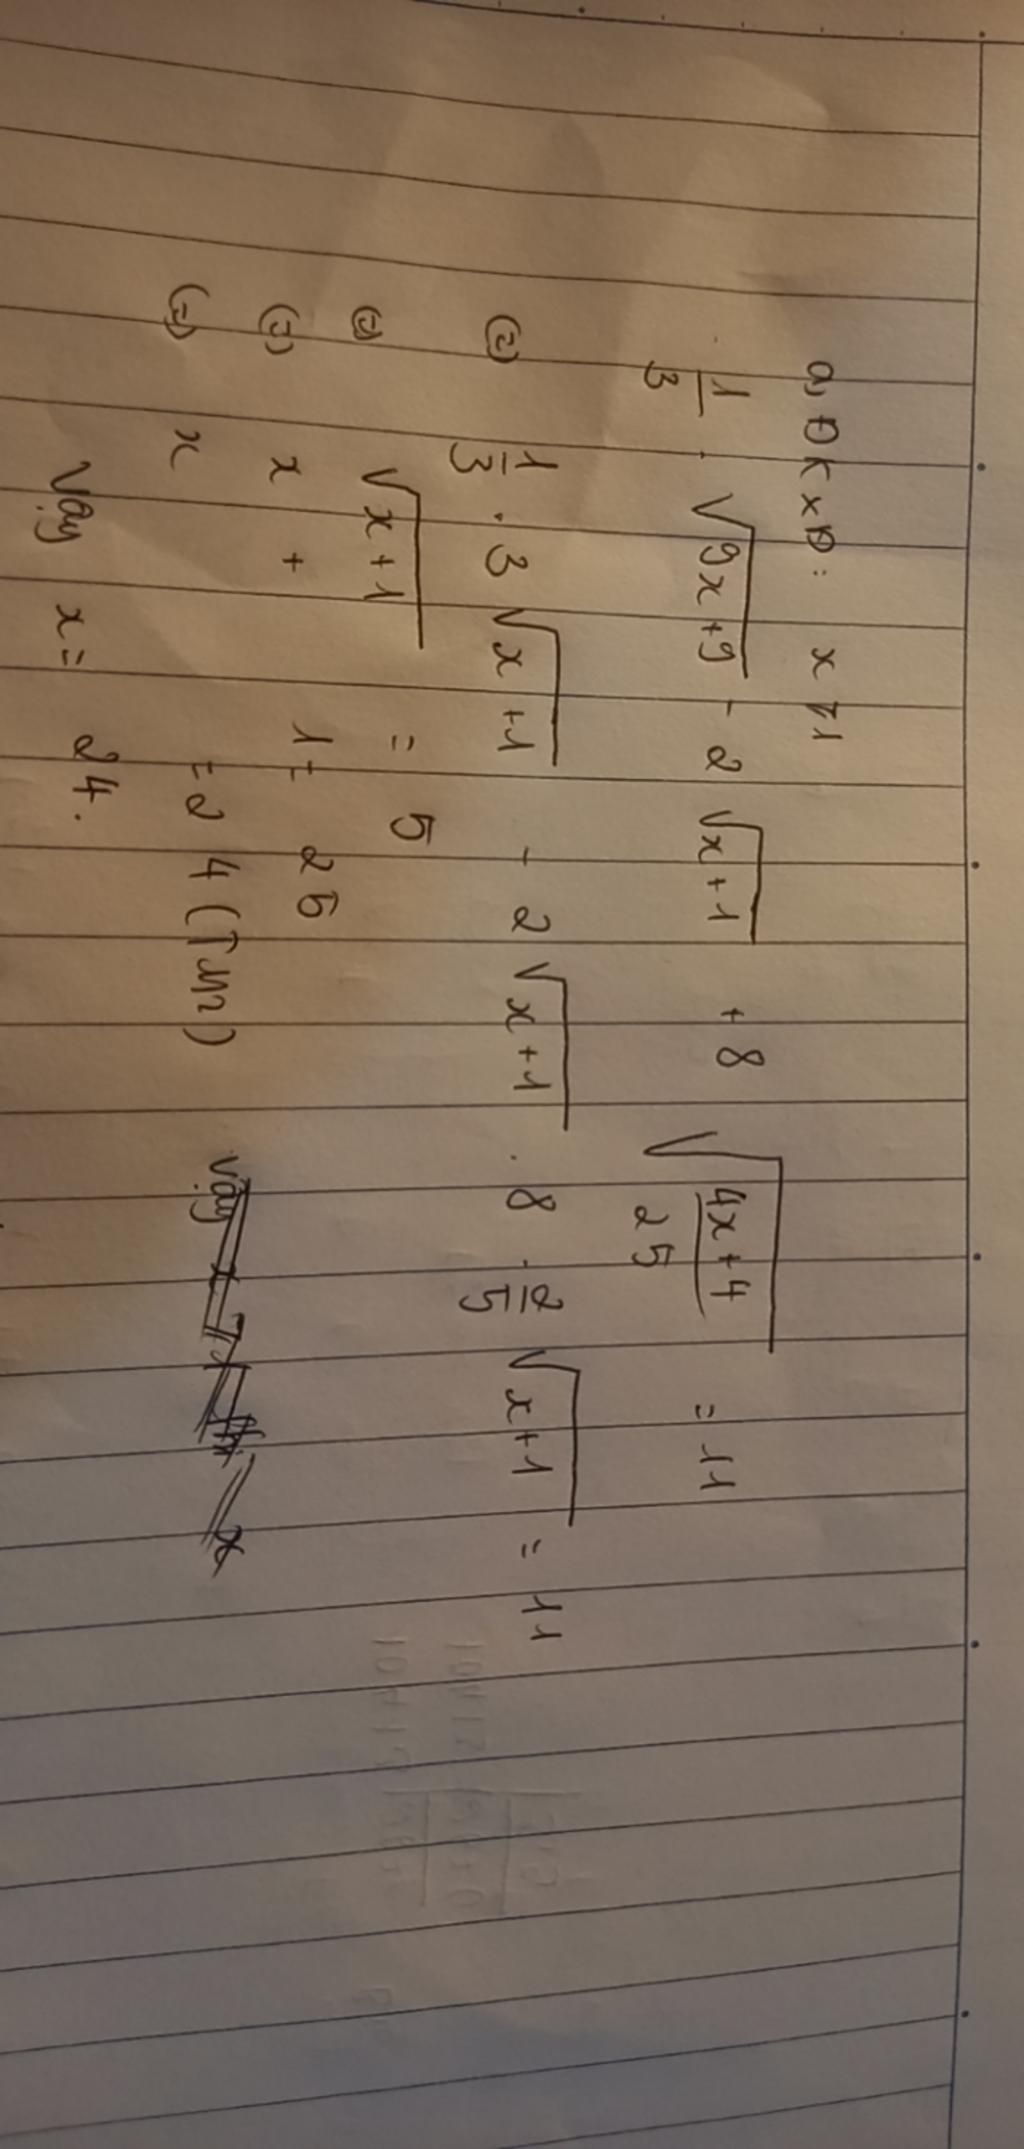 a) ĐKXĐ: x ≥ 1
1/3 . √(9x+9) - 2 √(x+1) + 8 √((4x+4)/25) = 11
(=) 1/3 . 3 √(x+1) - 2 √(x+1) . 8 . 2/5 √(x+1) = 11
(=) √(x+1) = 5
(=) x + 1 = 25
(=) x = 24 (TM)
Vậy x = 24.